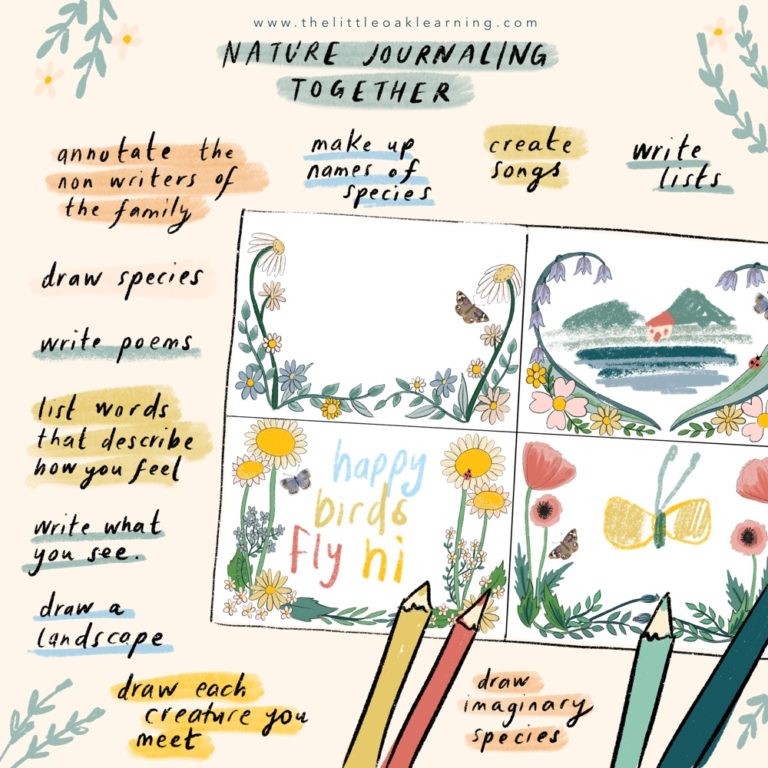 www.thelittleoaklearning.com
NATURE JOURNALING
TOGETHER
annotate the
non writers of
the family
make up
names of
species
create
songs
write
lists
draw species
write poems
list words
that describe
how you feel
write what
you see.
draw a
landscape
happy
birds
fly hi
draw each
creature you
meet
draw
imaginary
species